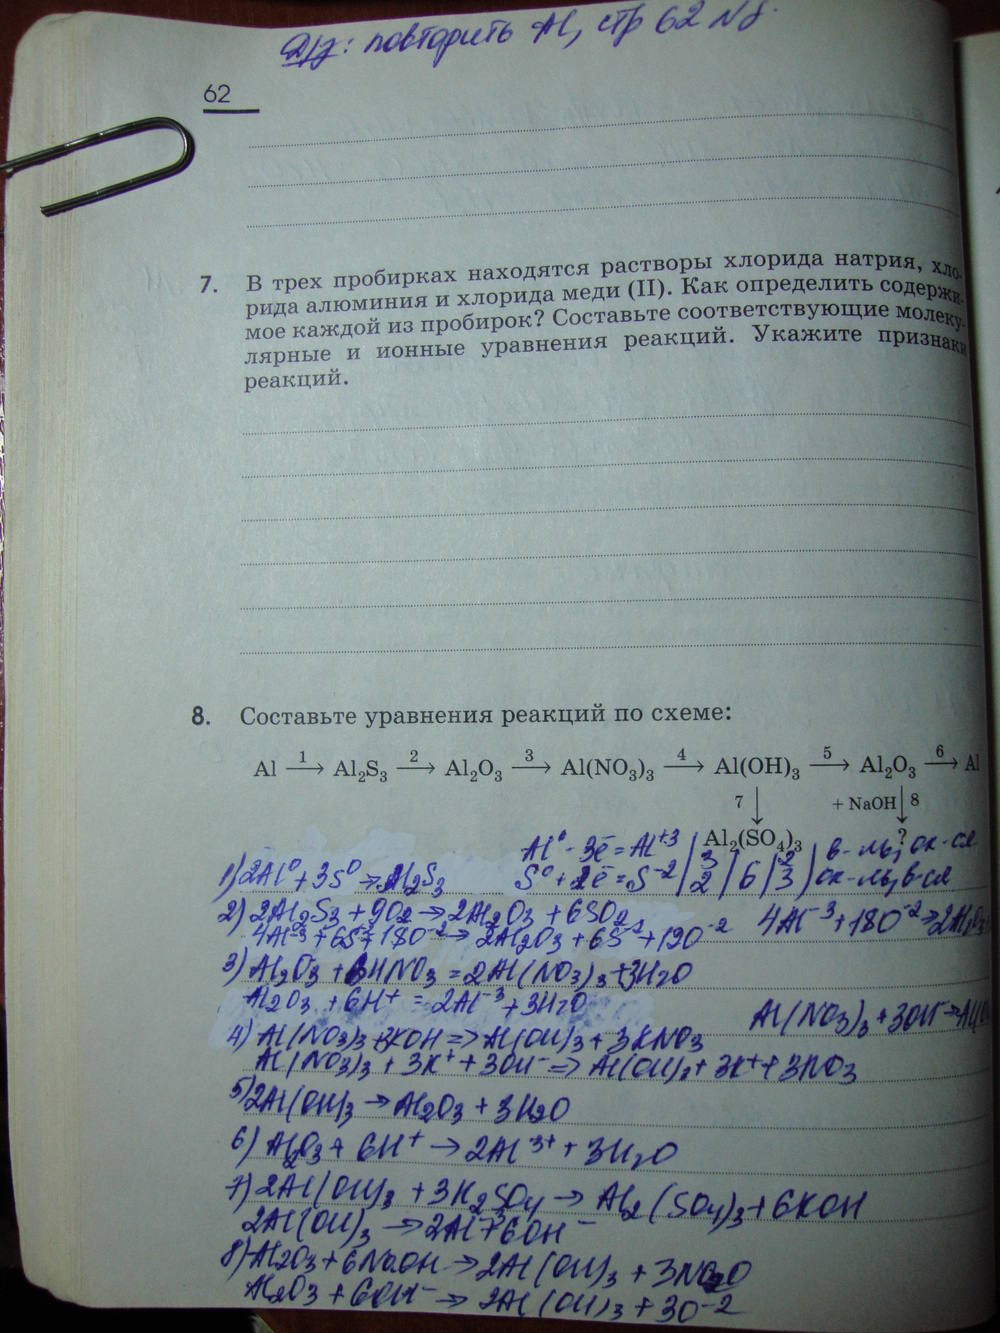 Д/з: повторить Al, стр 62 №8.
62
7. В трех пробирках находятся растворы хлорида натрия, хло-
рида алюминия и хлорида меди (II). Как определить содержи-
мое каждой из пробирок? Составьте соответствующие молеку-
лярные и ионные уравнения реакций. Укажите признаки
реакций.
8. Составьте уравнения реакций по схеме:
Al —1→ Al₂S₃ —2→ Al₂O₃ —3→ Al(NO₃)₃ —4→ Al(OH)₃ —5→ Al₂O₃ —6→ Al
7↓ + NaOH↓8
Al₂(SO₄)₃ ?
Al⁰ - 3ē = Al⁺³ | 3 | 6 | 2 | в-ль, ок-ся
1) 2Al⁰ + 3S⁰ → Al₂S₃ S⁰ + 2ē = S⁻² | 2 | 3 | ок-ль, в-ся
2) 2Al₂S₃ + 9O₂ → 2Al₂O₃ + 6SO₂ 4Al⁻³ + 18O⁻² → 2Al₂O₃
4Al⁻³ + 6S⁺² + 18O⁻² → 2Al₂O₃ + 6S⁻² + 19O⁻²
3) Al₂O₃ + 6HNO₃ = 2Al(NO₃)₃ + 3H₂O
Al₂O₃ + 6H⁺ = 2Al⁻³ + 3H₂O
Al(NO₃)₃ + 3OH⁻ → Al(O
4) Al(NO₃)₃ + 3KOH => Al(OH)₃ + 3KNO₃
Al(NO₃)₃ + 3K⁺ + 3OH⁻ => Al(OH)₃ + 3K⁺ + 3NO₃
5) 2Al(OH)₃ → Al₂O₃ + 3H₂O
6) Al₂O₃ + 6H⁺ → 2Al³⁺ + 3H₂O
7) 2Al(OH)₃ + 3K₂SO₄ → Al₂(SO₄)₃ + 6KOH
2Al(OH)₃ → 2Al⁺³ + 6OH⁻
8) Al₂O₃ + 6NaOH → 2Al(OH)₃ + 3Na₂O
Al₂O₃ + 6OH⁻ → 2Al(OH)₃ + 3O⁻²